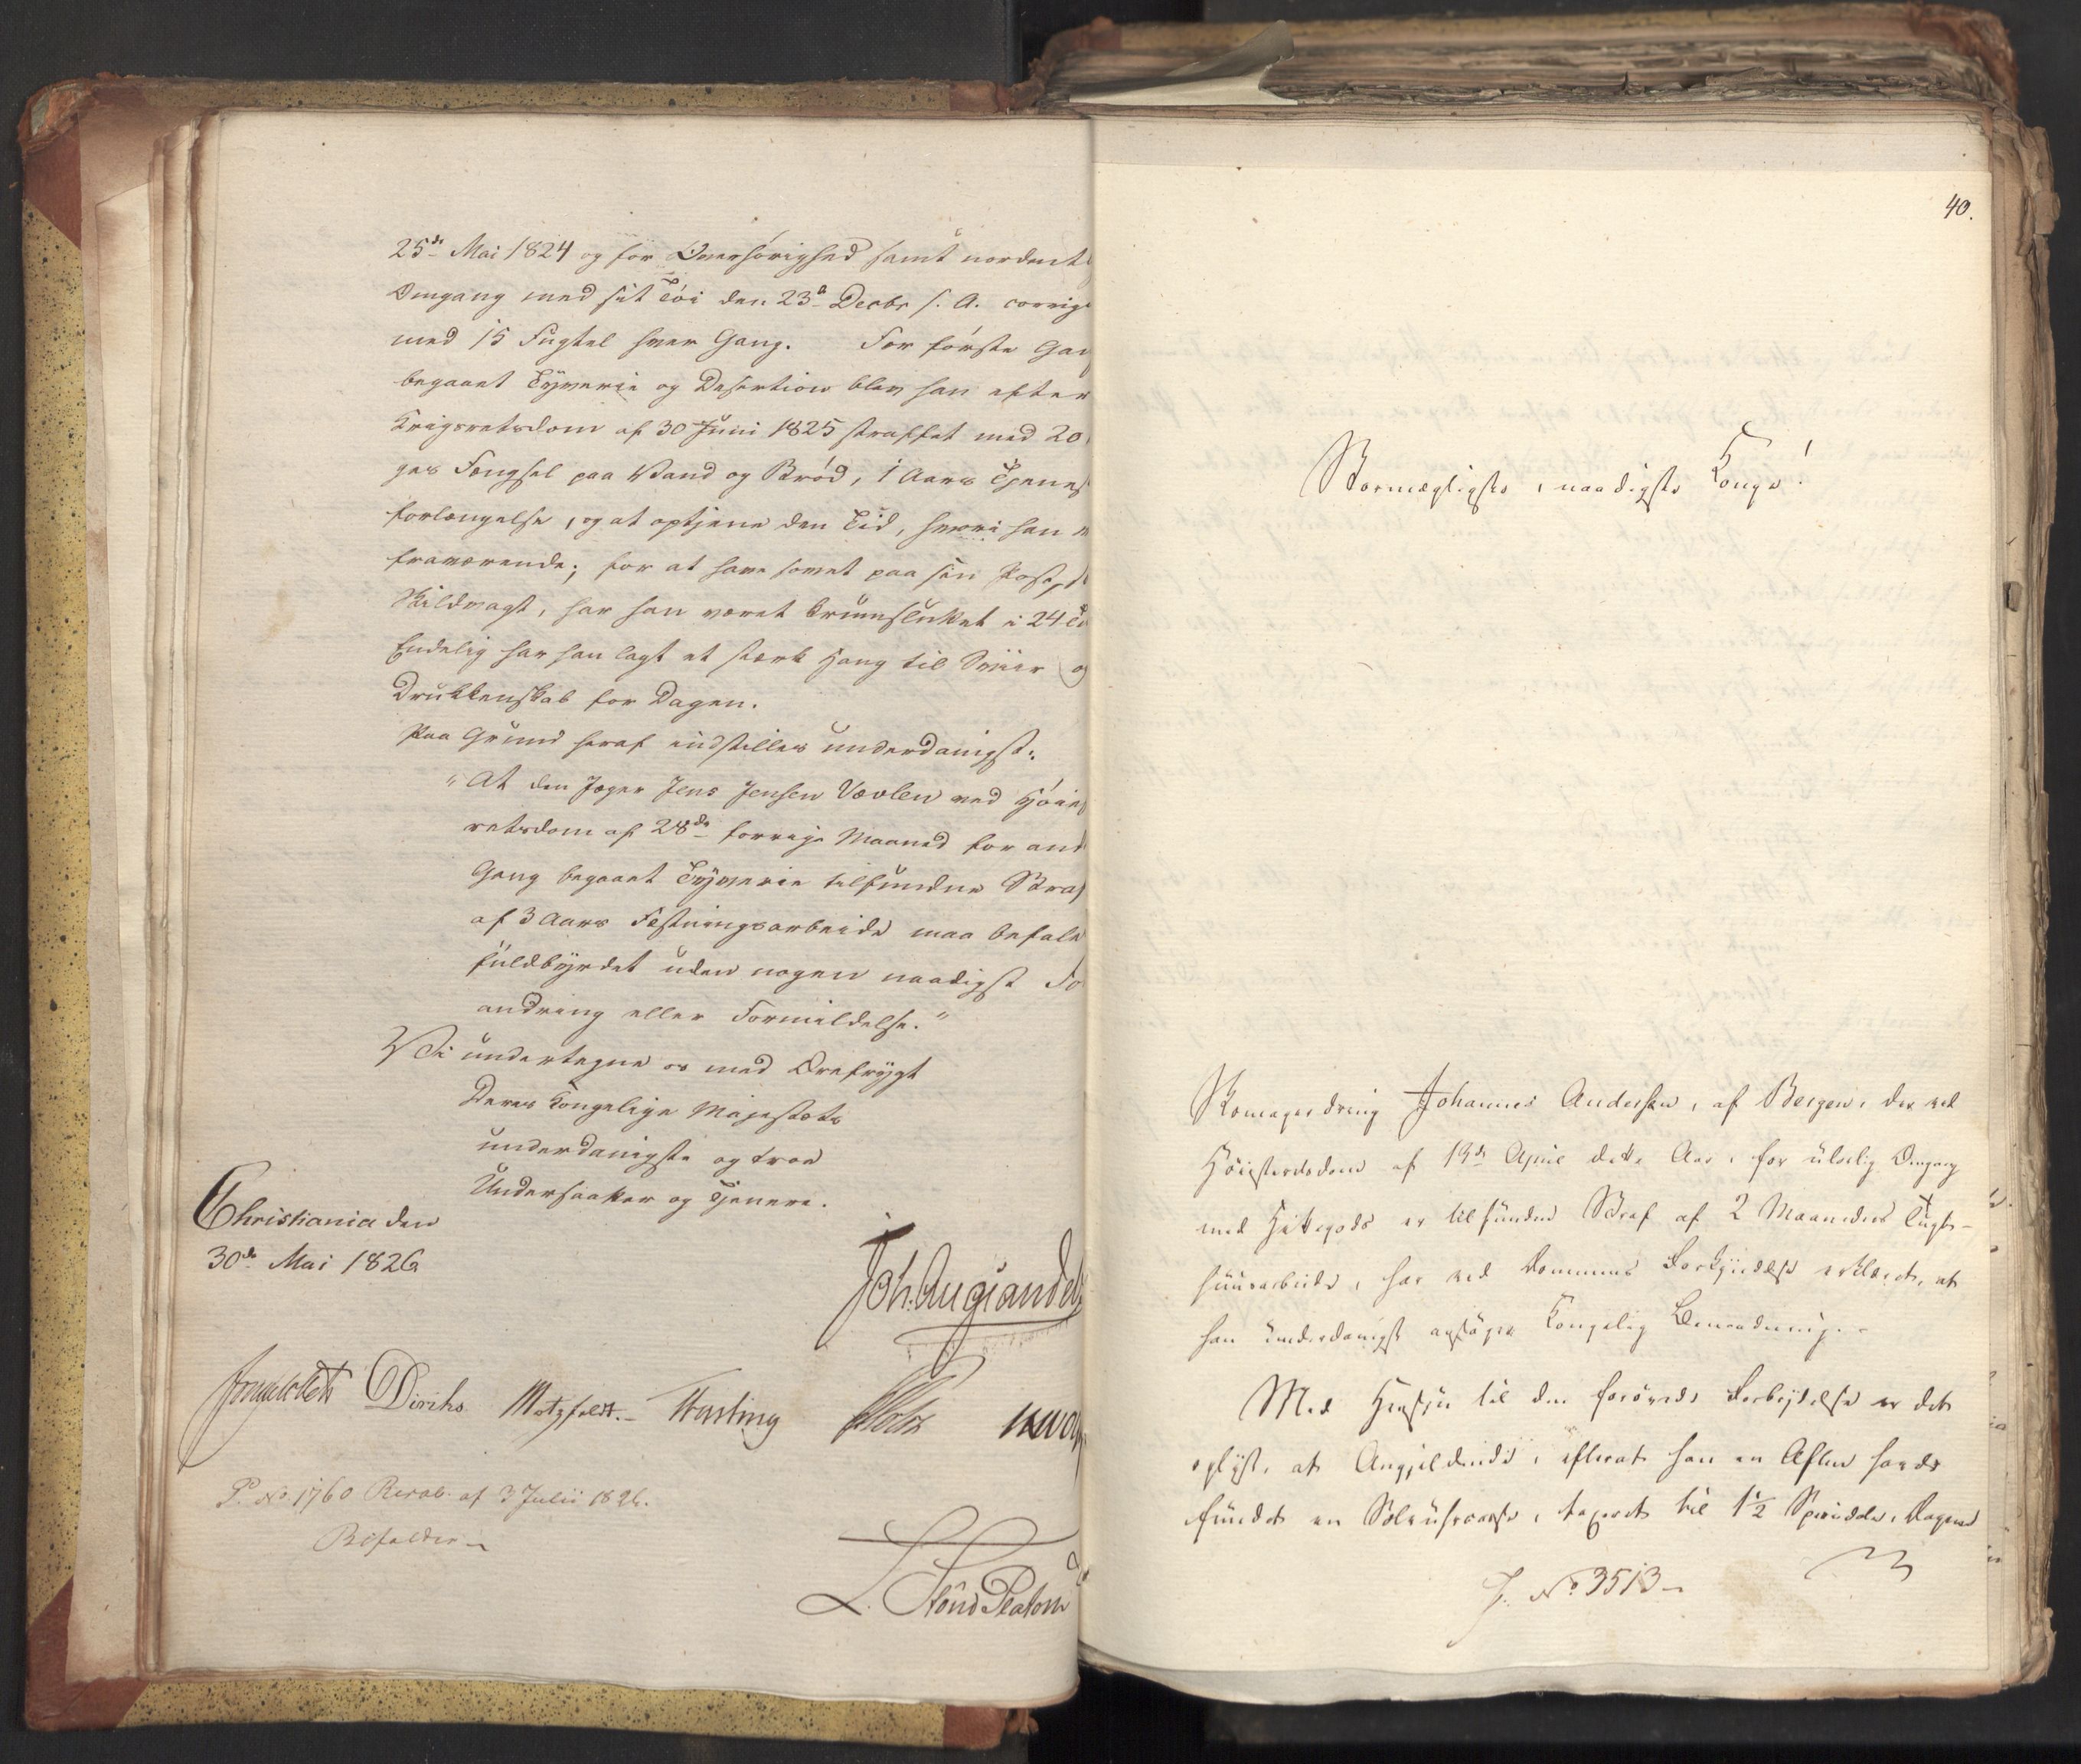 25de Mai 1824 og for Overhørighed samt uordentl
Omgang med sit Tøi den 23d Decbr s. A. corrige
med 15 Fugtel hver Gang. For første Gan
begaaet Tyverie og Desertion blev han efter
Krigsretsdom af 30 Juni 1825 straffet med 20
ges Fængsel paa Vand og Brød, 1 Aars Tjenes
forlængelse, og at optjene den Tid, hvori han
fraværende; for at have sovet paa sin Post,
Skildvagt, har han været krumsluttet i 24 Ti
Endelig har han lagt et stærk Hang til Sviir og
Drukkenskab for Dagen.
Paa Grund heraf indstilles underdanigst:
"At den Jæger Jens Jensen Vævlen ved Høies
retsdom af 28de forrige Maaned for and
Gang begaaet Tyverie tilfundne Straf
af 3 Aars Fæstningsarbeide maa befale
fuldbyrdet uden nogen naadigst Fo
andring eller Formildelse."
Vi undertegne os med Ærefrygt
Deres Kongelige Majestæts
underdanigste og troe
Undersaatter og Tjenere.
Christiania den
30de Mai 1826
Joh. Aug Sandels
Diriks Motzfeldt. Fasting
P. No 1760 Resol. af 3 Julii 1826.
Bifaldes
L. Stoud Platou
40.
Stormægtigste, naadigste Konge!
Skomagerdreng Johannes Andersen, af Bergen, der ved
Høiesteretsdom af 19de April dette Aar, for ulovlig Omgang
med Hittegods er tilfunden Straf af 2 Maaneders Tugt-
huusarbeide, har ved Dommens Forkyndelse erklæret, at
han underdanigst ansøger Kongelig Benaadning.
Med Hensyn til den forøvede Forbrydelse er det
oplyst, at Angjeldende, efterat han en Aften havde
fundet en Sølvuhrkasse, taxeret til 1½ Speciedaler, Dagen
J. No 3513